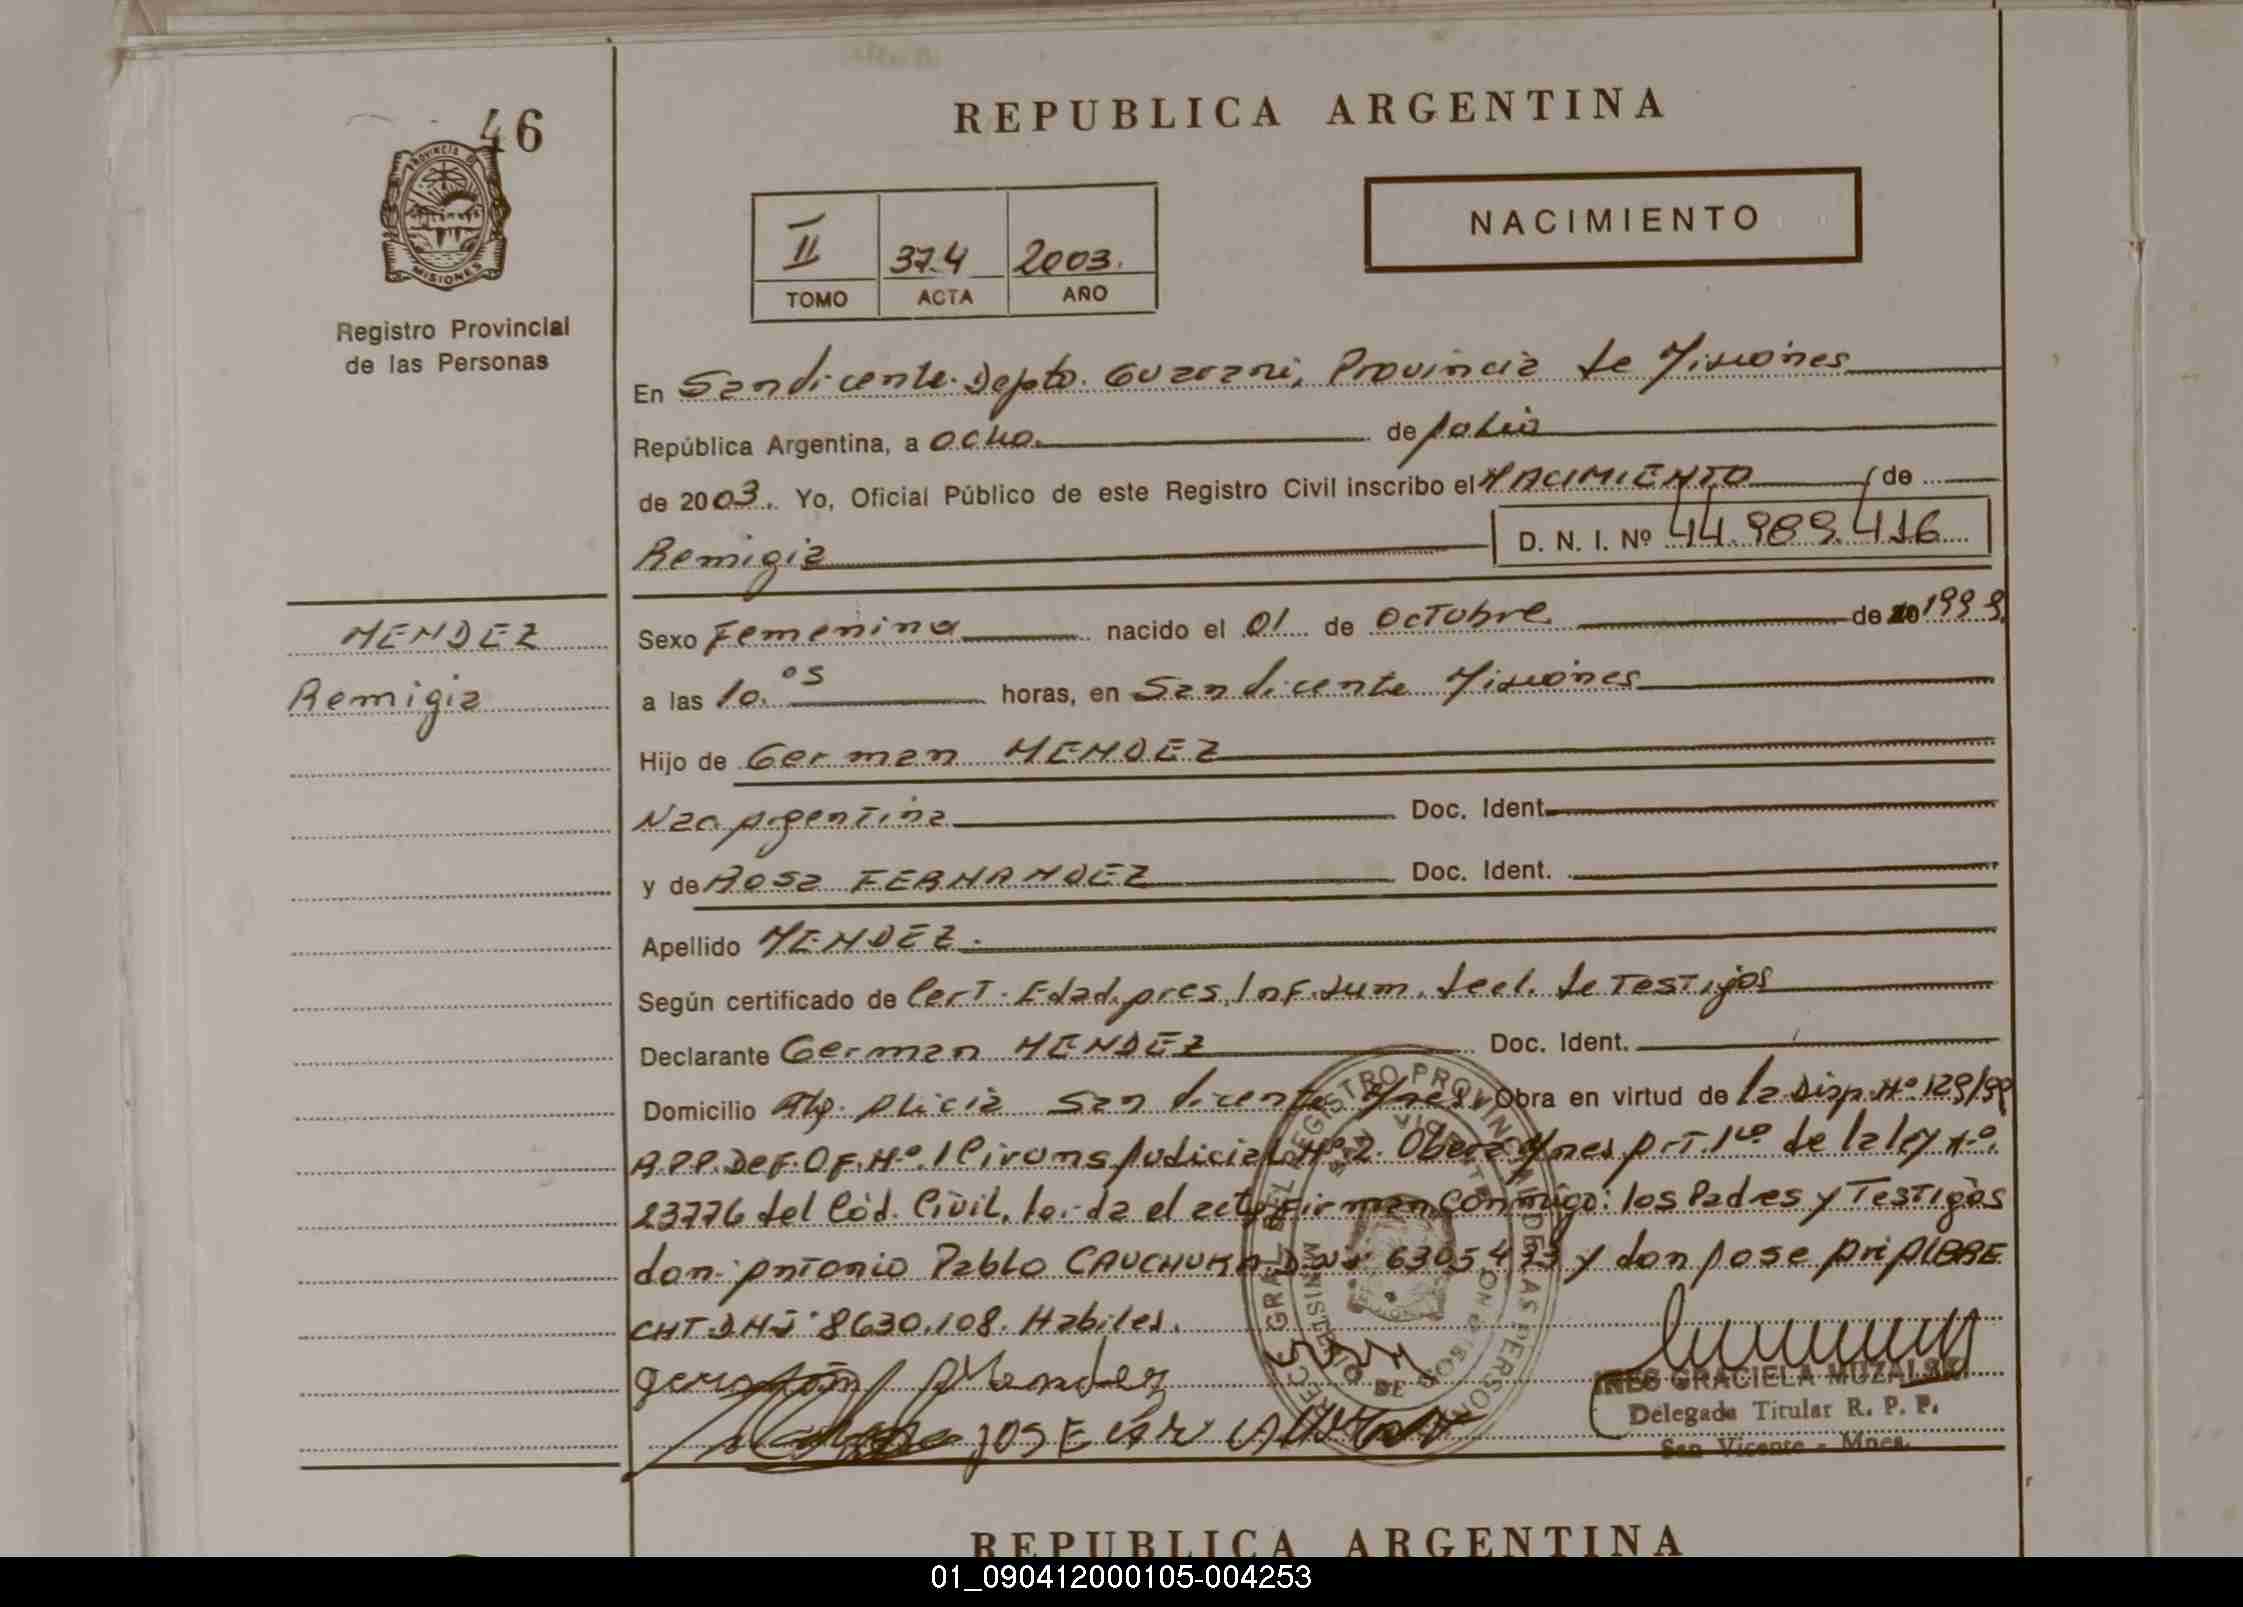 46
REPUBLICA ARGENTINA
PROVINCIA DE
MISIONES
Registro Provincial
de las Personas
II 374 2003.
TOMO ACTA AÑO
NACIMIENTO
En San Vicente. Depto. Guarani, Provincia de Misiones
República Argentina, a ocho. de Julio
de 2003. Yo, Oficial Público de este Registro Civil inscribo el NACIMIENTO de
Remigia D. N. I. Nº 44.989.416
MENDEZ
Remigia
Sexo Femenina nacido el 01 de Octubre de 20 1999
a las 10.05 horas, en San Vicente Misiones
Hijo de German MENDEZ
Nac. Argentina Doc. Ident.
y de Rosa FERNANDEZ Doc. Ident.
Apellido MENDEZ.
Según certificado de Cert. Edad. pres. Inf. Sum. decl. de Testigos
Declarante German MENDEZ Doc. Ident.
Domicilio Alicia San Vicente Mnes. Obra en virtud de la Disp. Nº 129/99
R.P.P. Def. Of. Nº 1 Judicial Nº 2. Obera Mnes Art. 1º de la ley Nº
23776 del Cód. Civil. leida el acta Firman Conmigo: los Padres y Testigos
don: Antonio Pablo CAUCHUKA D.N.I. 6305473 y don Jose Ari ALBRE
CHT D.N.I. 8630.108. Habiles.
Mendez
JOSE ARI
INES GRACIELA MUZALSKI
Delegada Titular R. P. P.
San Vicente - Mnes.
REPUBLICA ARGENTINA
01_090412000105-004253